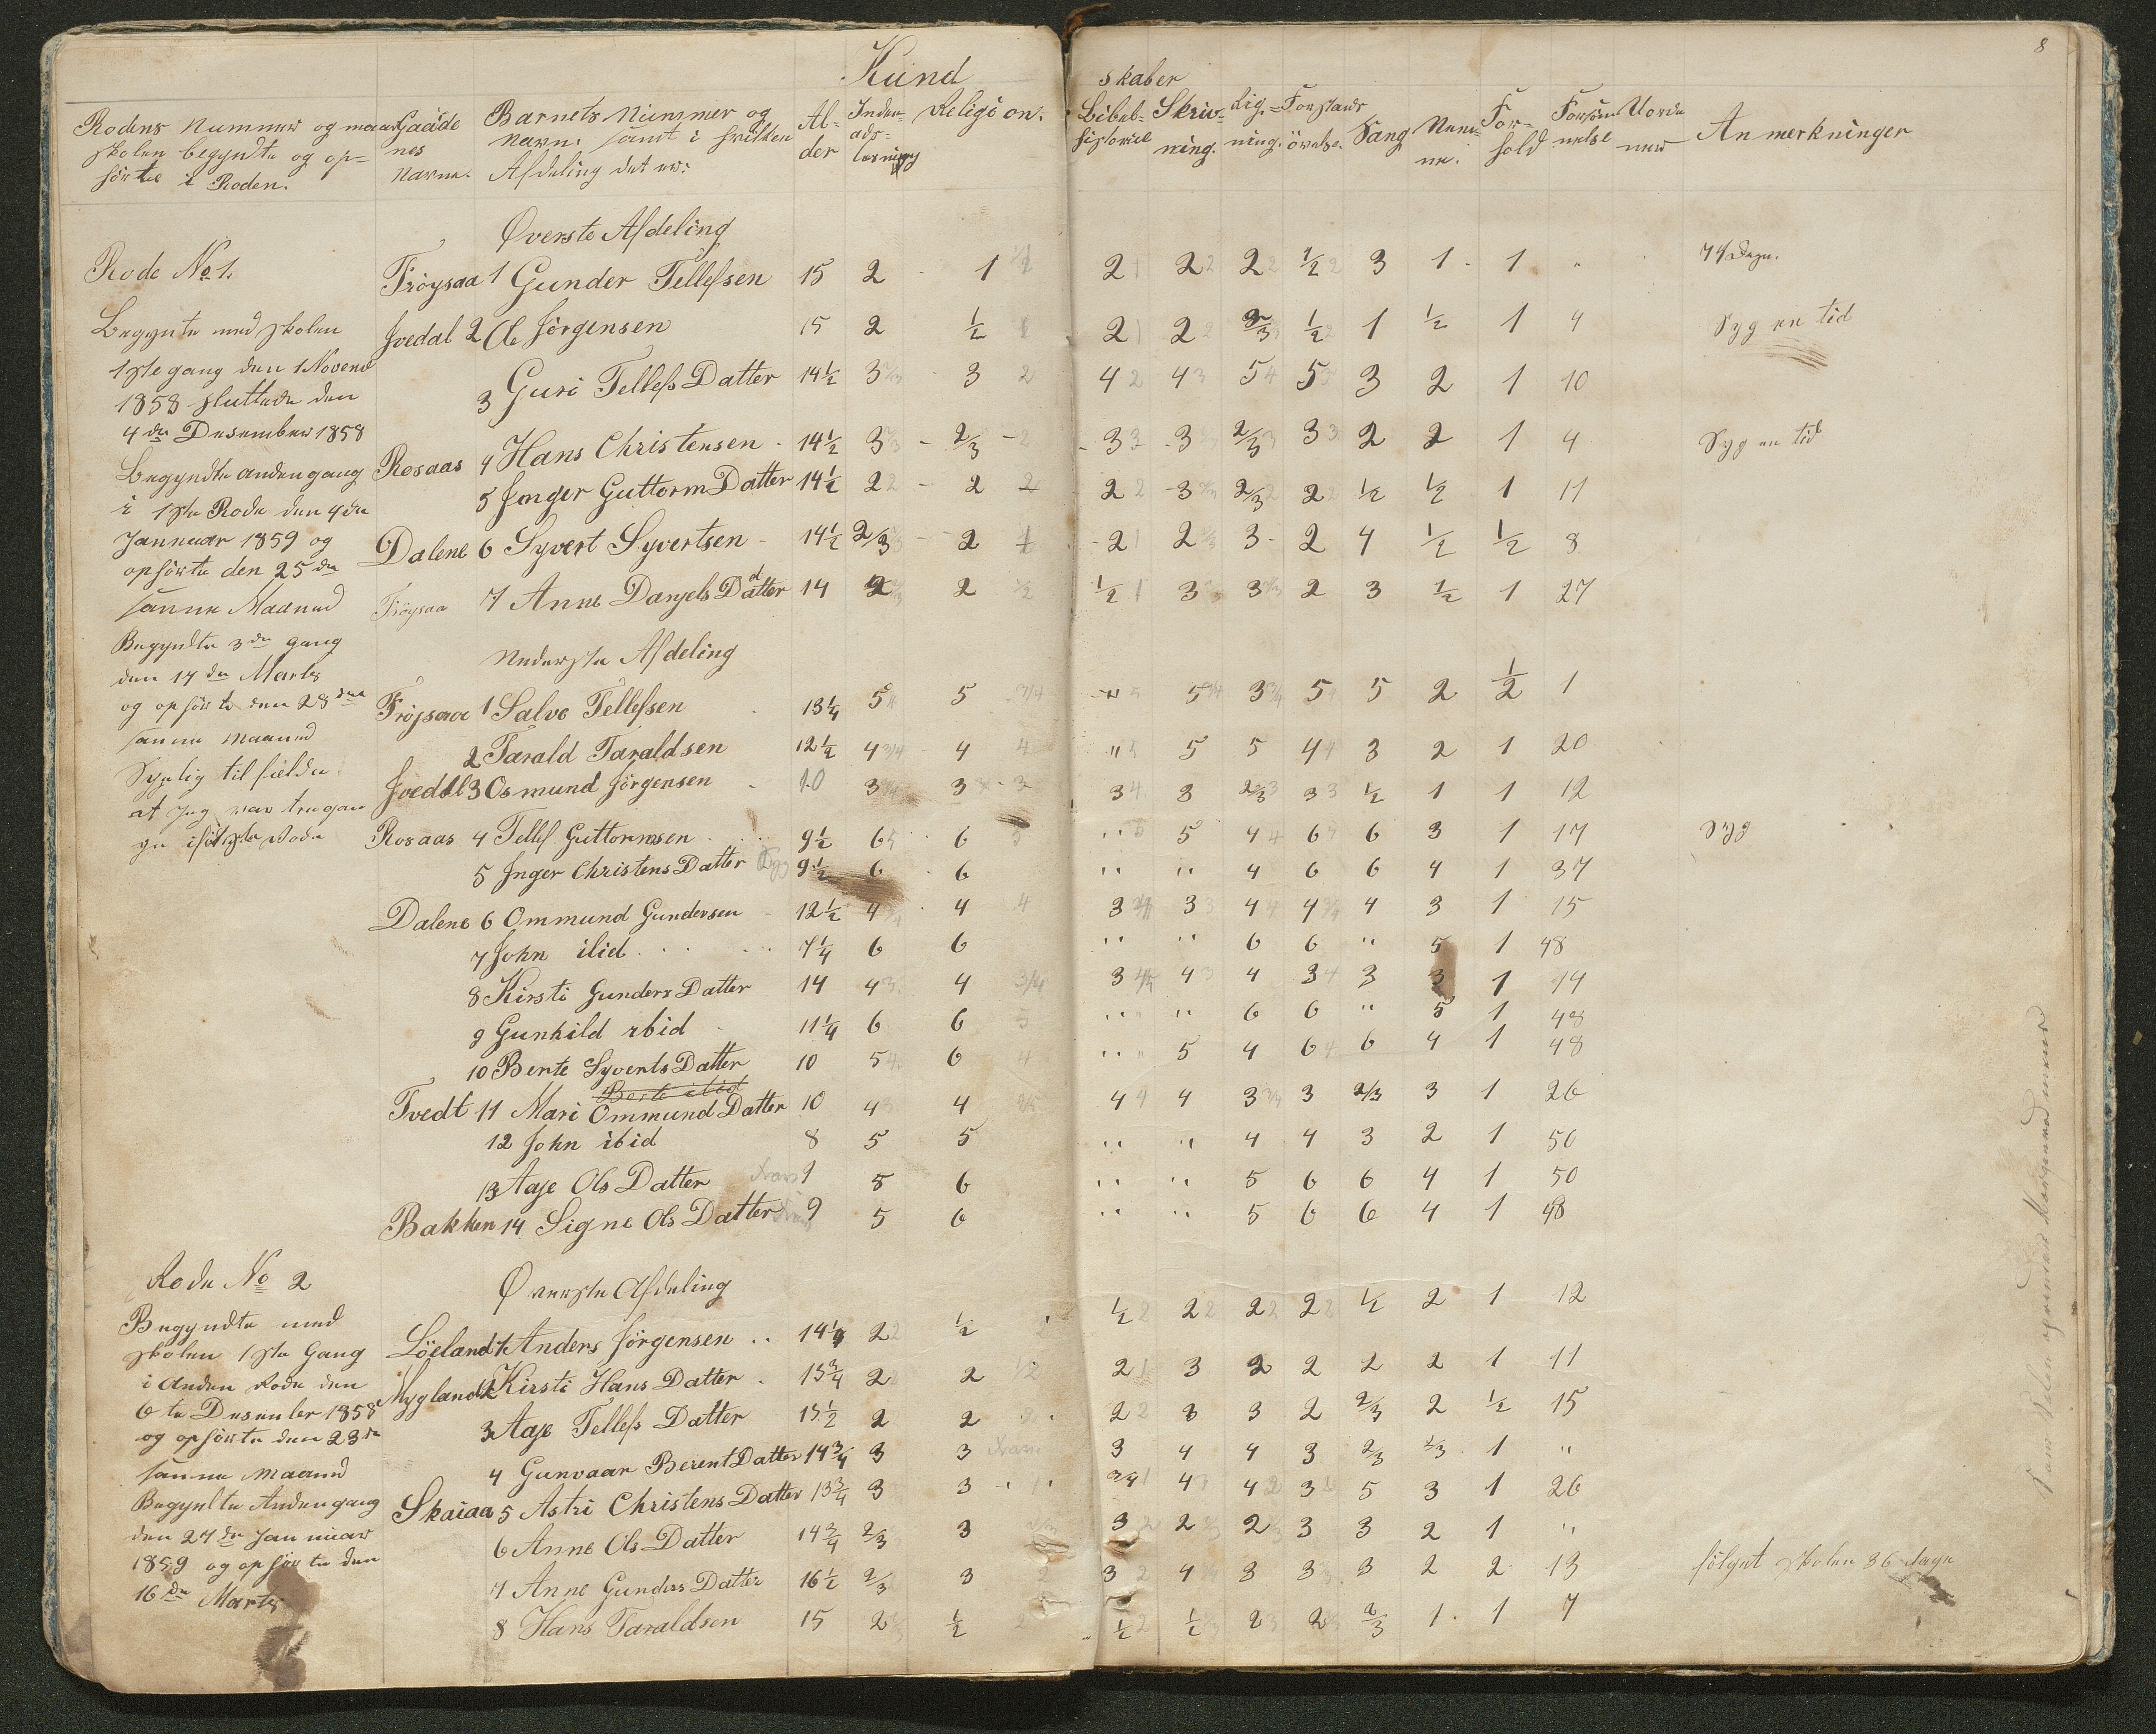 8
Kund
skaber
Rodens Nummer og naar
skolen begyndte og op=
hörte i Roden.
Gaade
nes
Navne.
Barnets Nummer og
Navn. samt i hvilken
Afdeling det er:
Al-
der
Inden-
ads-
læsning
Religion.
Bibel-
historie
Skriv-
ning.
Rig=
ning.
Forstands
övelse.
Sang
Nem-
me.
For-
hold
Forsöm
melse
Uorde
ner
Anmerkninger
Øverste Afdeling
Rode No 1.
Fröysaa 1 Gunder Tellefsen 15 2 1 2 2 2 ½ 3 1 1 " 74 Dage.
Begynte med skolen
Jvedal 2 Ole Jörgensen 15 2 ½ 2 2 2/3 ½ 1 ½ 1 4 Syg en tid
1ste gang den 1 Novemb
3 Guri Tellefs Datter 14½ 3 3 4 4 5 5 3 2 1 10
1858 sluttede den
4de Desember 1858
Rosaas 4 Hans Christensen 14½ 3 2/3 3 3 2/3 3 2 2 1 4 Syg en tid
Begyndte anden gang
5 Jnger Guttorm Datter 14½ 2 2 2 3 2/3 2 ½ ½ 1 11
i 1ste Rode den 4de
Januuar 1859 og
Dalene 6 Syvert Syvertsen 14½ 2/3 2 2 2 3 2 4 ½ ½ 8
ophörte den 25de
samme Maaned
Fröysaa 7 Anne Danjels Datter 14 2 2 ½ 3 3 2 3 ½ 1 27
Begyndte 3de gang
Nederste Afdeling
den 17de Marts
og ophörte den 28de
Fröjsaa 1 Salve Tellefsen 13¼ 5 5 5 3 5 5 2 ½ 1
samme maaned
2 Tarald Taraldsen 12½ 4 4 " 5 5 4 3 2 1 20
Jvedal 3 Osmund Jörgensen 10 3 3 3 3 2/3 3 ½ 1 1 12
at Jeg var
Rosaas 4 Tellef Guttormsen 9½ 6 6 " 5 4 6 6 3 1 17 Syg
5 Jnger Christens Datter 9½ 6 6 " " 4 6 6 4 1 37
Dalene 6 Ommund Gundersen 12½ 4 4 3 3 4 4 4 3 1 15
7 John ibid 7¼ 6 6 " " 6 6 " 5 1 48
8 Kirsti Gunders Datter 14 4 4 3 4 4 3 3 3 1 14
9 Gunhild ibid 11¼ 6 6 " " 6 6 " 5 1 48
10 Berte Syverts Datter 10 5 6 " 5 4 6 6 4 1 48
Berte ibid
Tvedt 11 Mari Ommund Datter 10 4 4 4 4 3 3 2/3 3 1 26
12 John ibid 8 5 5 " " 4 4 3 2 1 50
13 Aaje Ols Datter 9 5 6 " " 5 6 6 4 1 50
Bakken 14 Signe Ols Datter 9 5 6 " " 5 6 6 4 1 48
Rode No 2
Øverste Afdeling
Begyndte med
Löeland 1 Anders Jörgensen 14¼ 2 ½ ½ 2 2 2 ½ 2 1 12
skolen 1ste Gang
i Anden Rode den
Mygland 2 Kirsti Hans Datter 15¾ 2 2 2 3 2 2 2 2 1 11
6te Desember 1858
3 Aaje Tellefs Datter 15½ 2 2 2 3 3 2 2/3 2 ½ 15
og ophörte den 23de
samme maaned
4 Gunvaar Berent Datter 14¾ 3 3 3 4 4 3 2/3 2/3 1 "
Begyndte Anden gang
Skaiaa 5 Astri Christens Datter 13¾ 3 3 3/4 4 4 3 5 3 1 26
den 24de Januuar
6 Anne Ols Datter 14¾ 2/3 3 3 2 2 3 3 2 1 "
1859 og ophörte den
7 Anne Gunders Datter 16½ 2/3 3 3 4 3 3 3 2 2 13 fölget skolen 36 dage
16de Marts
8 Hans Taraldsen 15 2 ½ ½ ½ 2 2 2/3 1 1 7